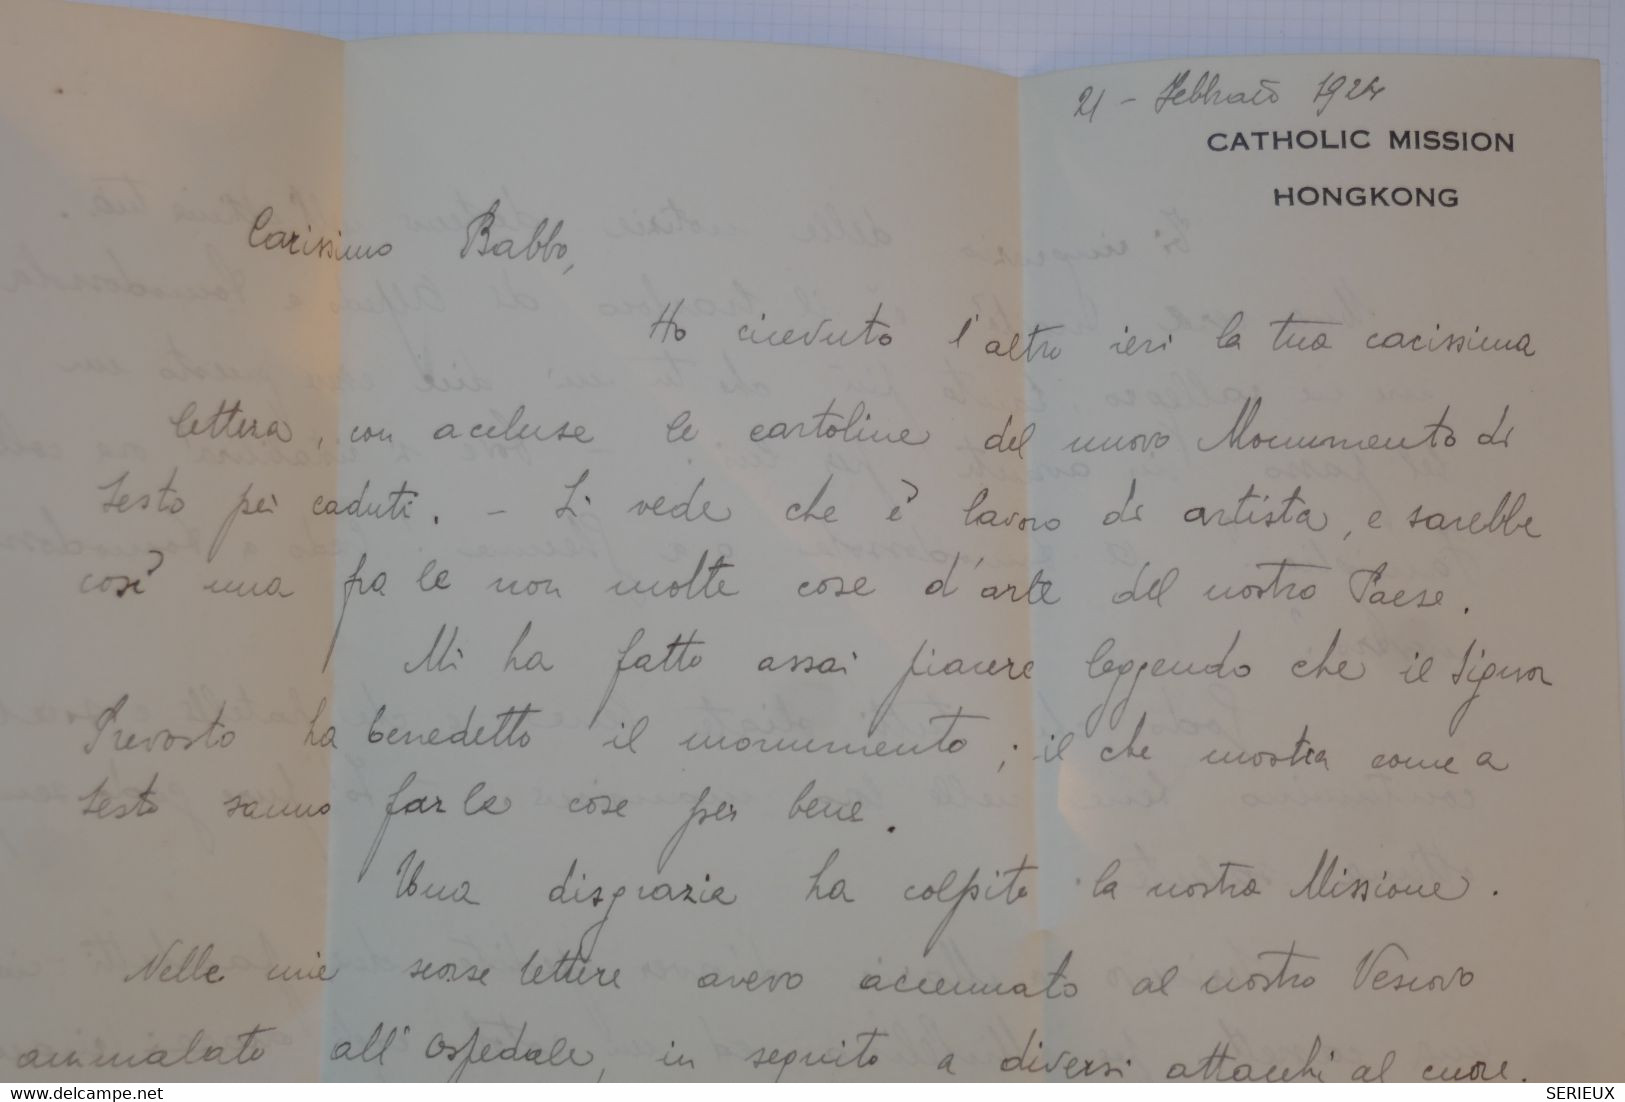 21 - Febbraio 1924
CATHOLIC MISSION
HONGKONG
Carissimo Babbo,
Ho ricevuto l'altro ieri la tua carissima
lettera, con accluse le cartoline del nuovo Monumento di
Sesto pei caduti. - Si vede che è lavoro di artista, e sarebbe
così una fra le non molte cose d'arte del nostro Paese.
Mi ha fatto assai piacere leggendo che il Signor
Prevosto ha benedetto il monumento; il che mostra come a
Sesto sanno far le cose per bene.
Una disgrazia ha colpito la nostra Missione.
Nelle mie scorse lettere avevo accennato al nostro Vescovo
ammalato all'Ospedale, in seguito a diversi attacchi al cuore.
delcampe.net
SERIEUX